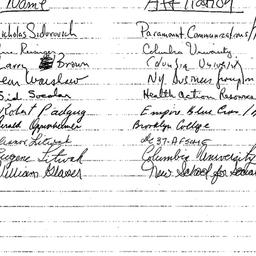 Name Affiliation
Nicholas Sidorovich Paramount Communications/
Columbia University
Larry Brown Columbia University
NY
Sid Socolar Health Action Resource
Robert Padgug Empire Blue Cross/
Gerald Oppenheimer Brooklyn College
Eleanor Litwak DC 37-AFSCME
Eugene Litwak Columbia University
William Glaser New School for Social